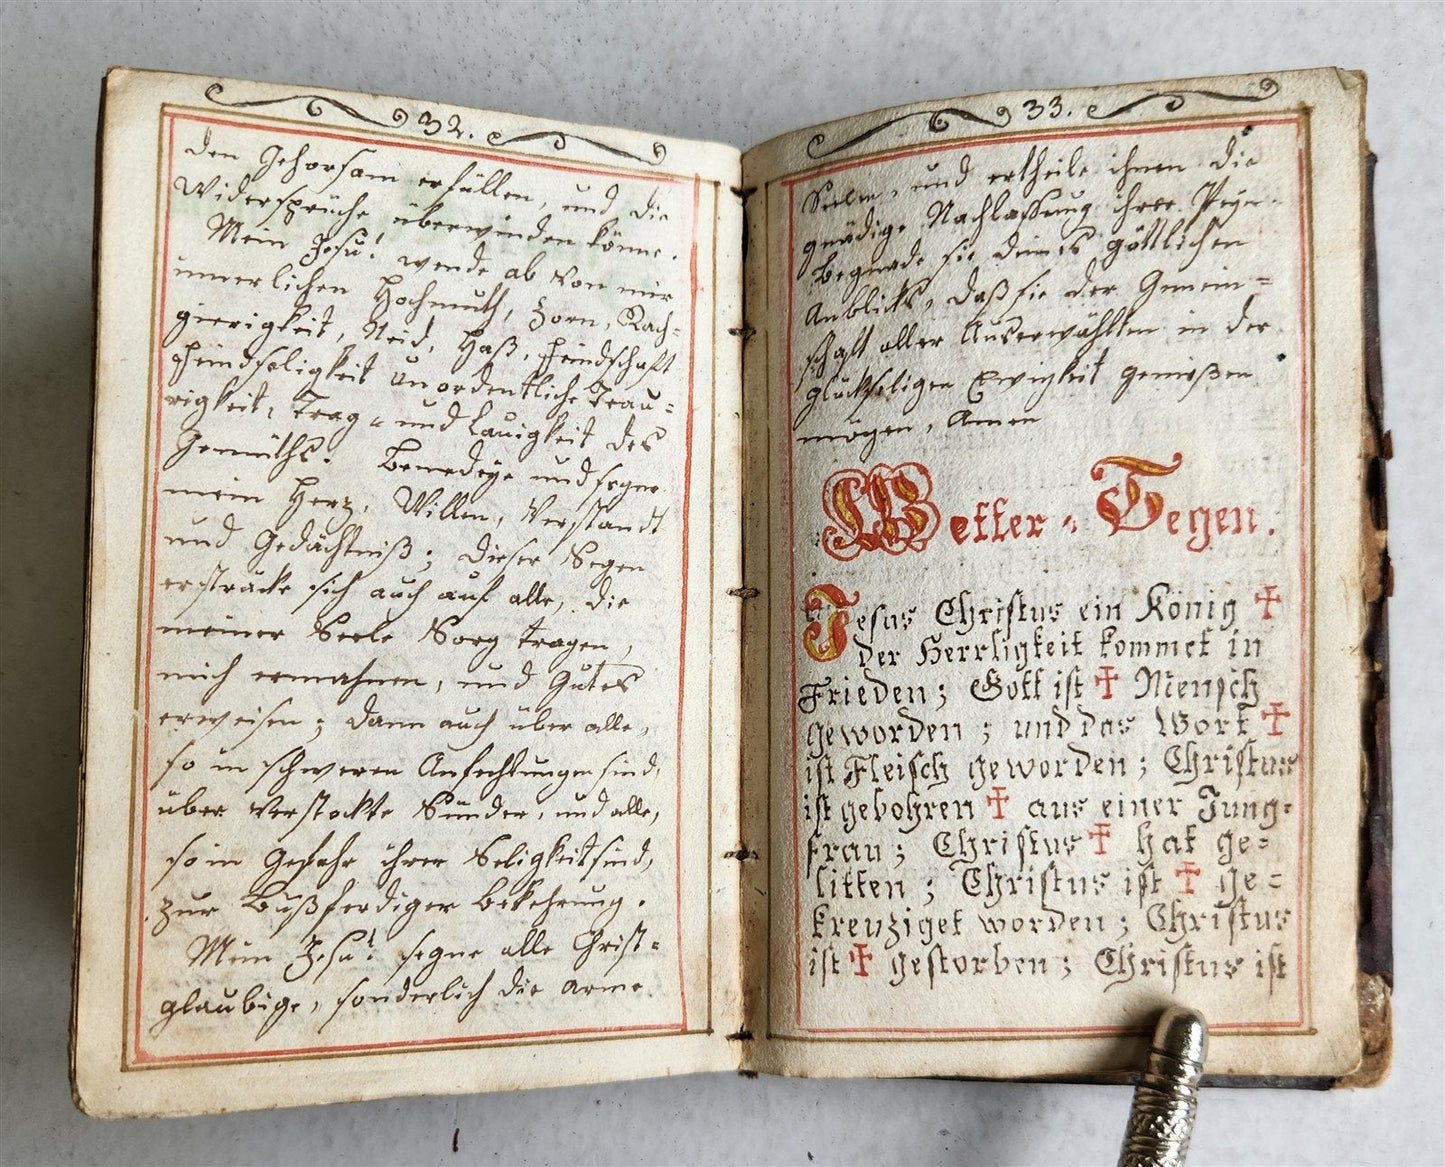 32.
den Gehorsam erfüllen, und die
Widersprüche überwinden könne.
Mein Jesu! wende ab von mir
innerlichen Hochmuth, Zorn, Rach-
gierigkeit, Neid, Haß, Feindschaft
Feindseligkeit unordentliche Trau-
rigkeit, Träg- und Lauigkeit des
Gemüths. Benedeÿe und segne
mein Herz, Willen, Verstandt
und Gedächtniß; dieser Segen
ersträcke sich auch auf alle, die
meiner Seele Sorg tragen,
mich ermahnen, und Gutes
erweisen; dann auch über alle,
so in schweren Anfechtungen sind,
über verstockte Sünder, und alle,
so in Gefahr ihrer Seligkeit sind,
zur Bußfertiger Bekehrung.
Mein Jesu! segne alle Christ-
glaubige, sonderlich die arme
33.
Seelen, und ertheile ihnen die
gnädige Nachlassung ihrer Peyn.
Begnade sie deines göttlichen
Anblicks, daß sie der Gemein-
schaft aller Auserwählten in der
glückseligen Ewigkeit genießen
mögen, Amen
Wetter-Segen.
Jesus Christus ein König ✝
der Herrligkeit kommet in
Frieden; Gott ist ✝ Mensch
geworden; und das Wort ✝
ist Fleisch geworden; Christus
ist gebohren ✝ aus einer Jung-
frau; Christus ✝ hat ge-
litten; Christus ist ✝ ge-
kreuziget worden; Christus
ist ✝ gestorben; Christus ist